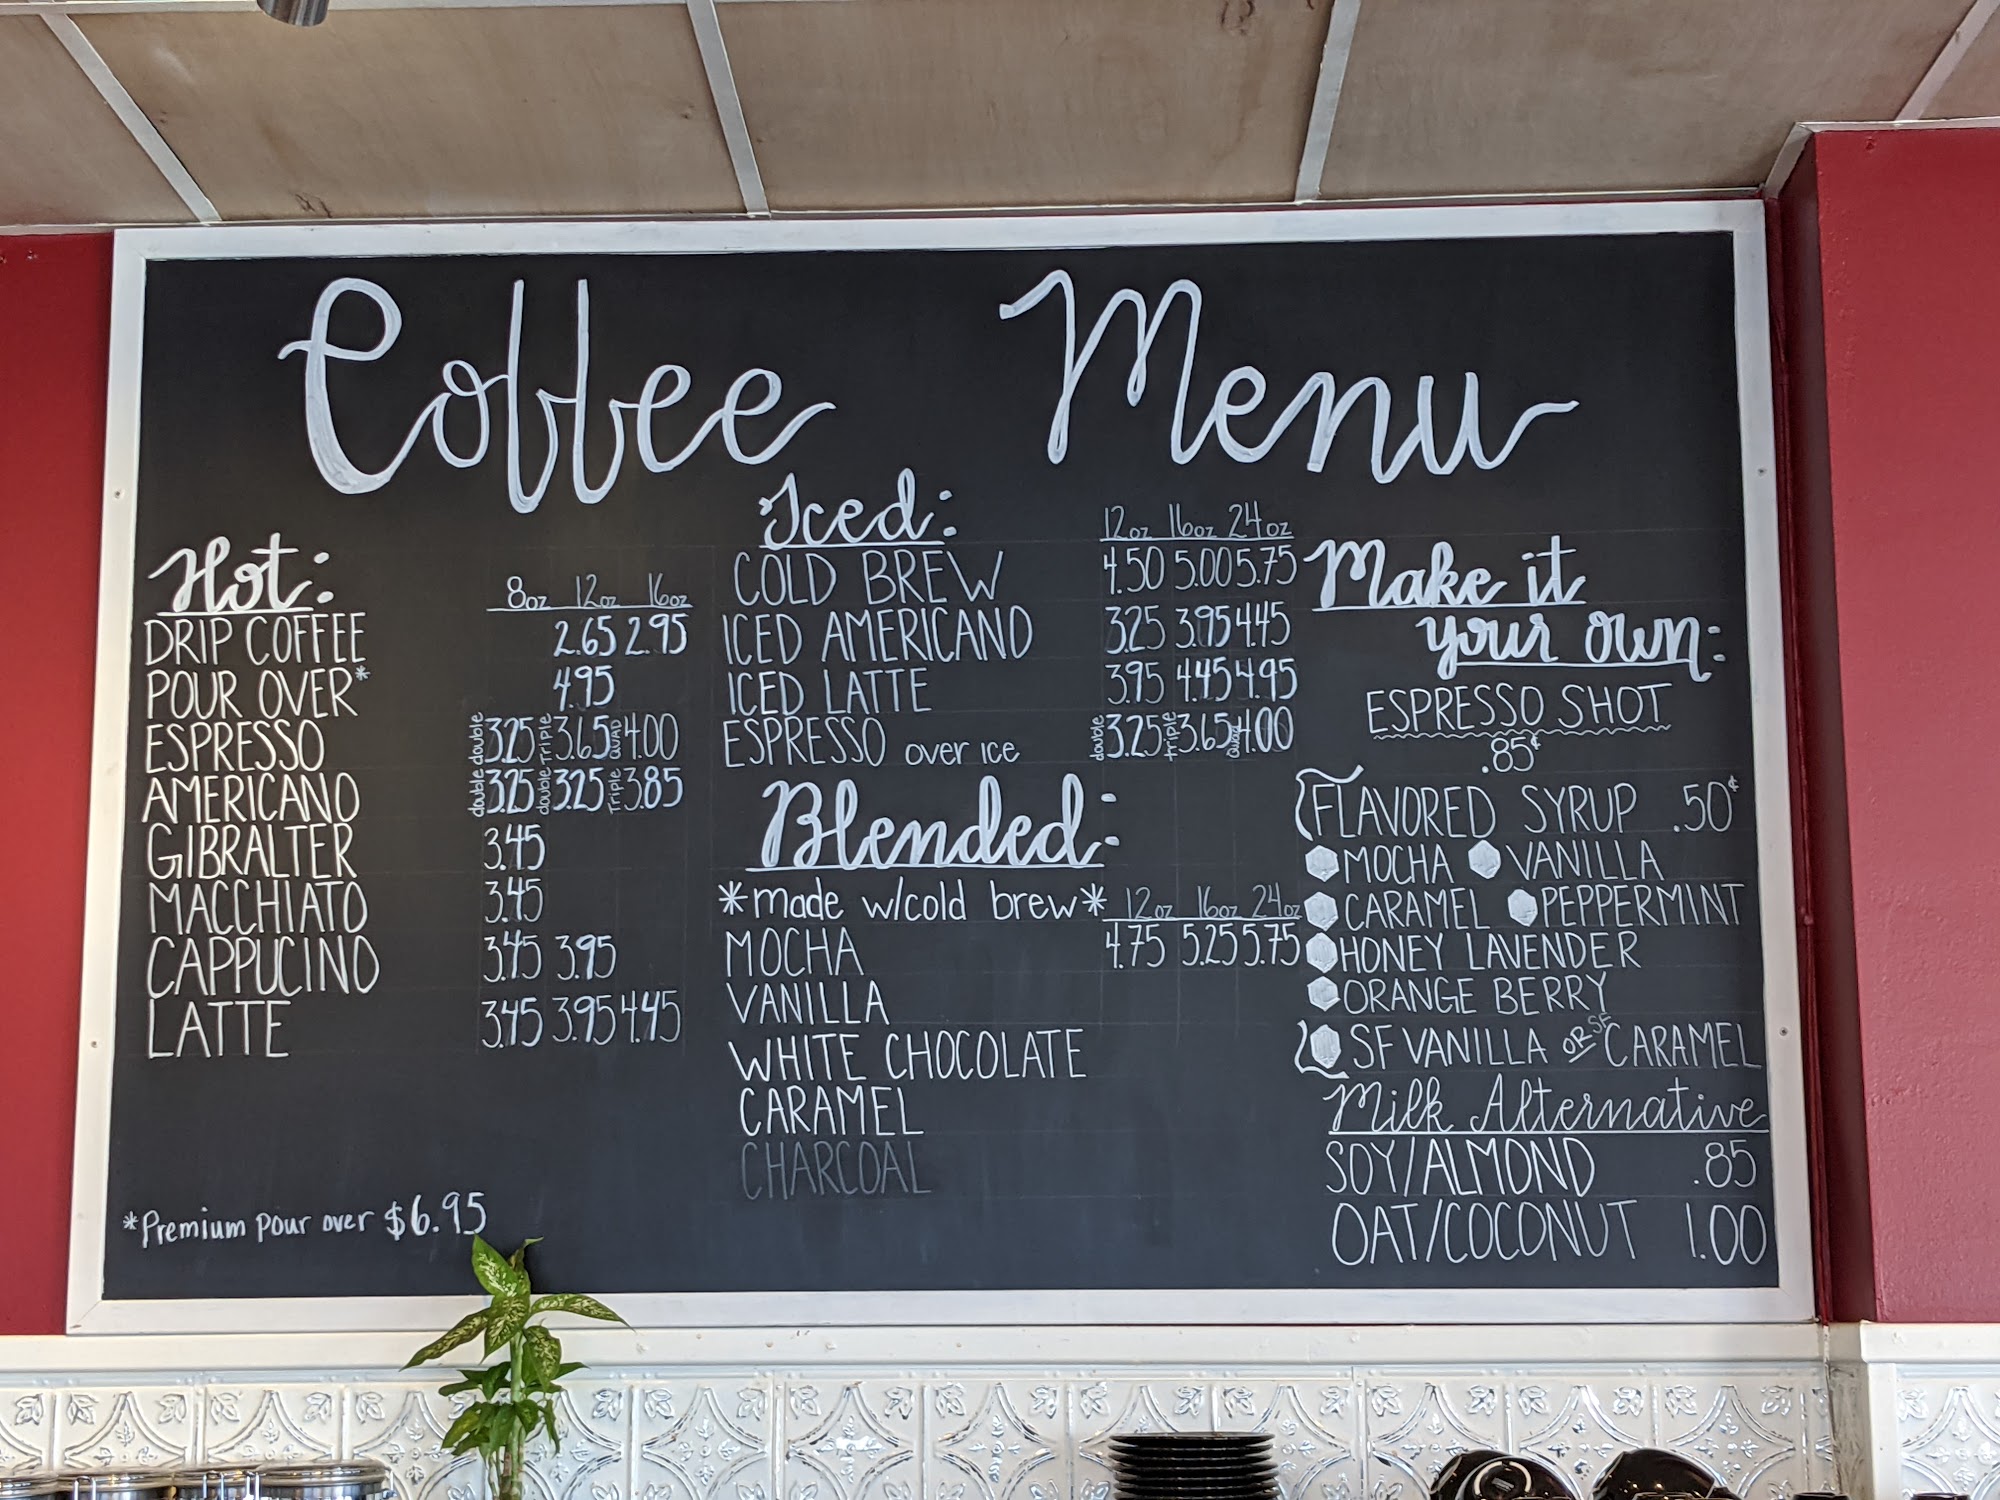 Coffee Menu
Hot:
8oz 12oz 16oz
DRIP COFFEE 2.65 2.95
POUR OVER* 4.95
ESPRESSO double 3.25 TRIPLE 3.65 QUAD 4.00
AMERICANO double 3.25 double 3.25 TRIPLE 3.85
GIBRALTER 3.45
MACCHIATO 3.45
CAPPUCINO 3.45 3.95
LATTE 3.45 3.95 4.45
*Premium pour over $6.95
Iced:
12oz 16oz 24oz
COLD BREW 4.50 5.00 5.75
ICED AMERICANO 3.25 3.95 4.45
ICED LATTE 3.95 4.45 4.95
ESPRESSO over ice double 3.25 TRIPLE 3.65 QUAD 4.00
Blended:
*made w/cold brew* 12oz 16oz 24oz
MOCHA 4.75 5.25 5.75
VANILLA
WHITE CHOCOLATE
CARAMEL
CHARCOAL
Make it
your own:
ESPRESSO SHOT
.85¢
FLAVORED SYRUP .50¢
MOCHA VANILLA
CARAMEL PEPPERMINT
HONEY LAVENDER
ORANGE BERRY
SF VANILLA OR SF CARAMEL
Milk Alternative
SOY/ALMOND .85
OAT/COCONUT 1.00